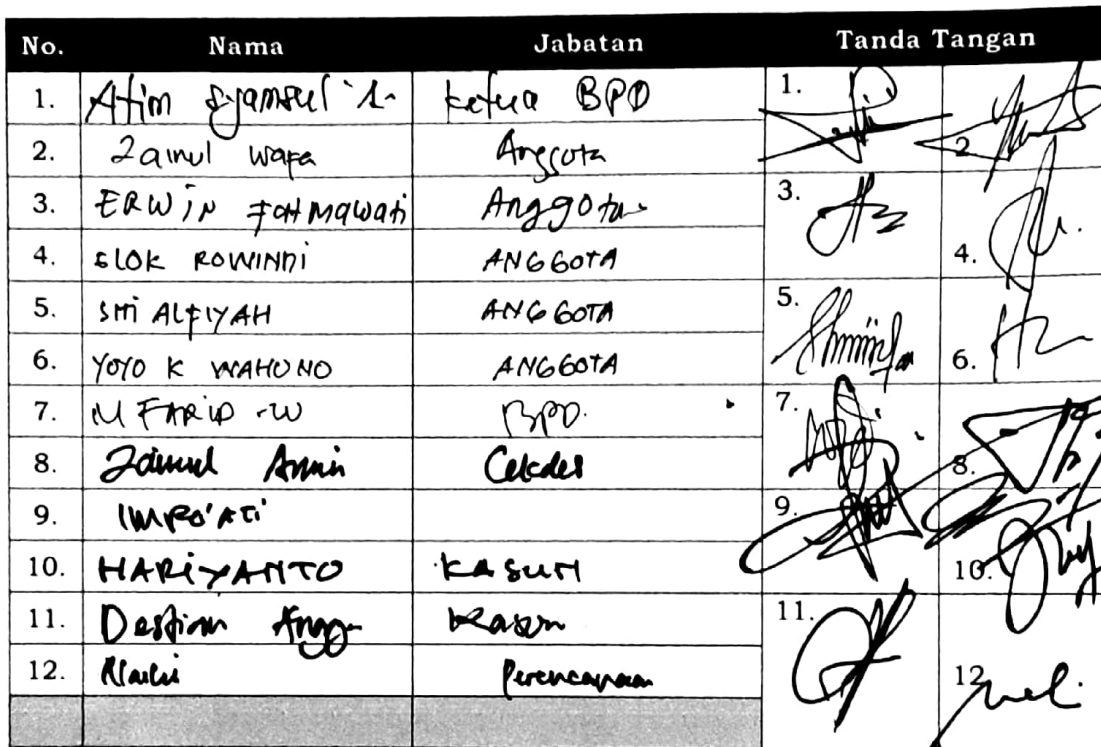 No. Nama Jabatan Tanda Tangan
1. Atim Syamsul A. Ketua BPD 1.
2. Zainul Wafa Anggota 2.
3. ERWiN FAtMAWAti Anggota 3.
4. ELOK ROWINDI ANGGOTA 4.
5. SITI ALFIYAH ANGGOTA 5.
6. YOYO K WAHONO ANGGOTA 6.
7. M FARID .W BPD. 7.
8. Zainul Amin 8.
9. 9.
10. HARiYANTO KASUN 10.
11. Kasun 11.
12. Perencanaan 12.